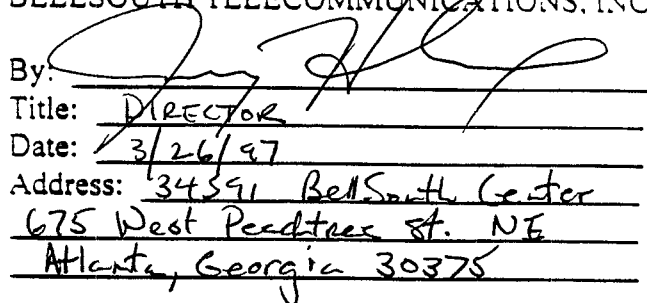 BELLSOUTH TELECOMMUNICATIONS, INC
By:
Title: DIRECTOR
Date: 3/26/97
Address: 34S91 BellSouth Center
675 West Peachtree St. NE
Atlanta, Georgia 30375